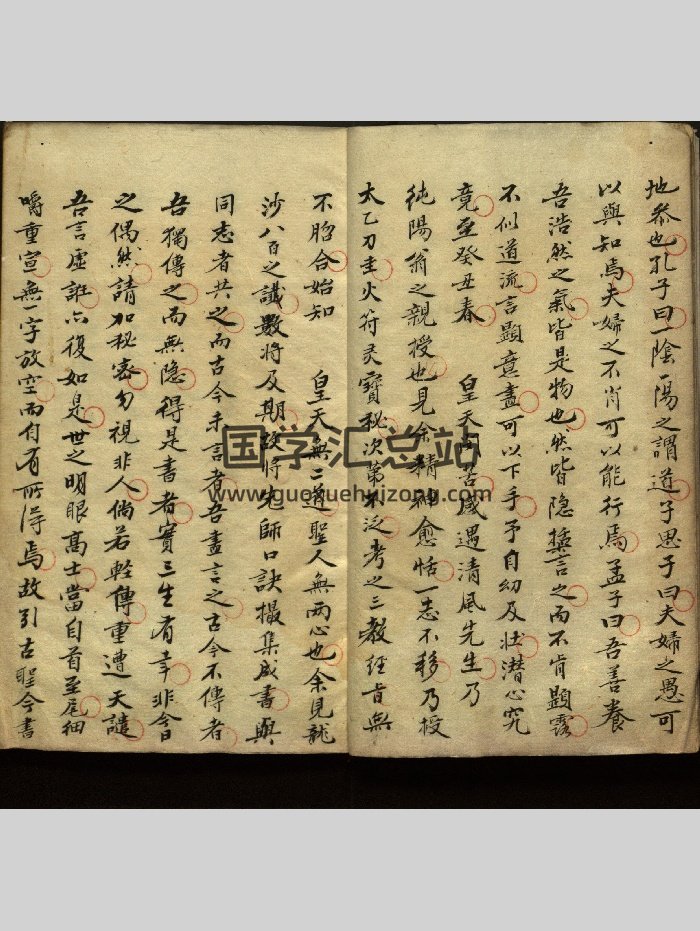 地參也孔子曰一陰一陽之謂道子思子曰夫婦之愚可
以與知焉夫婦之不肖可以能行焉孟子曰吾善養
吾浩然之氣皆是物也然皆隐藴言之而不肯顕露
不似道流言顕意盡可以下手予自幼及壯潜心究
竟至癸丑春 皇天苦感遇清風先生乃
純陽翁之親授也見余精神愈恬一志不移乃授
太乙刀圭火符灵寳秘次第泛考之三教經旨無
不脗合始知 皇天無二道聖人無两心也余見龍
沙八百之讖數將及期故將先師口訣撮集成書與
同志者共之而古今未言者吾盡言之古今不傳者
吾獨傳之而無隐得是書者實三生有幸非今日
之偶然請加秘密勿視非人倘若輕傳重遭天譴
吾言虚誑亦復如是世之明眼髙士當自首至尾細
嚼重宣無一字放空而自有所得焉故引古聖今書
国学汇总站
www.guoxuehuizong.com